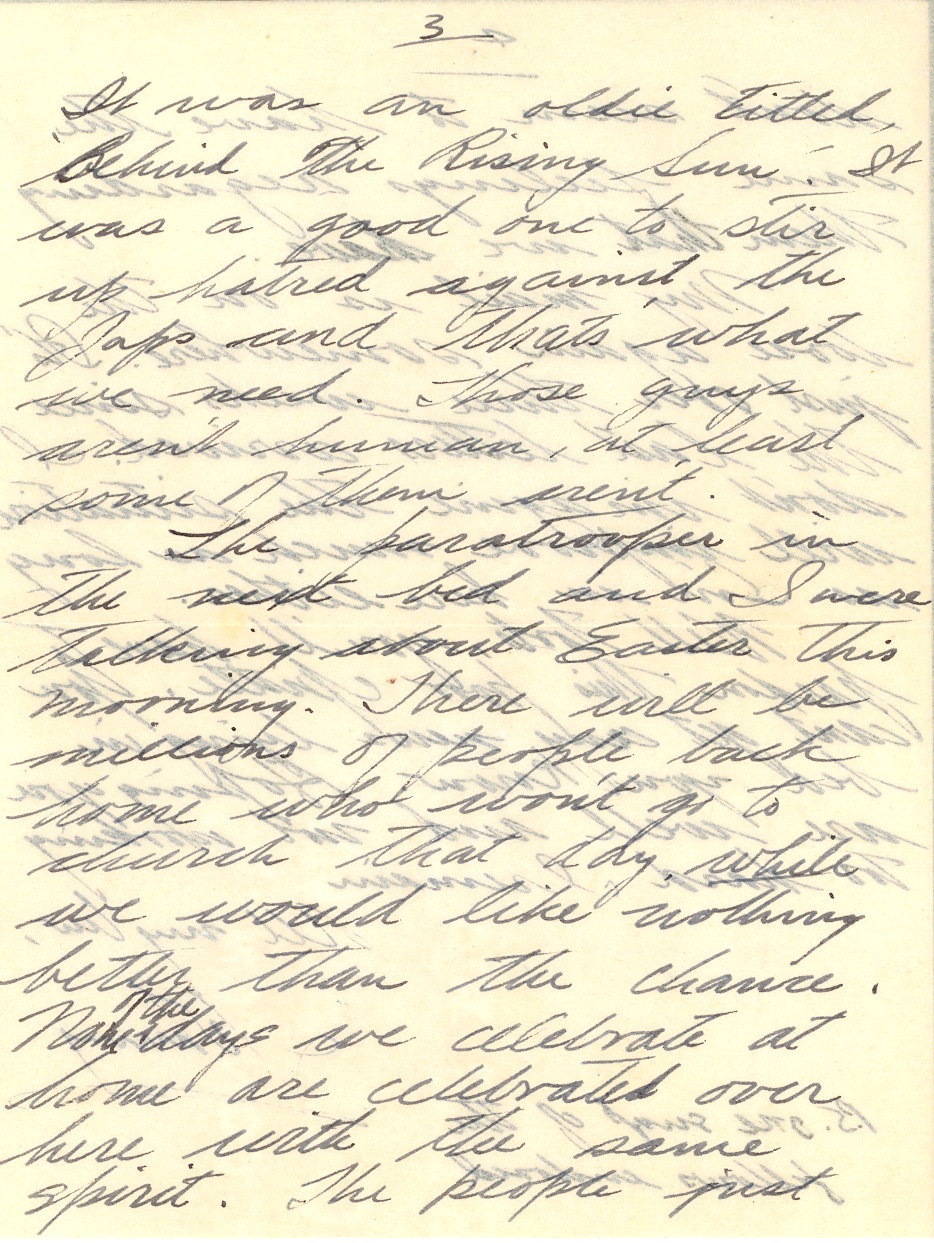 3
It was an oldie titled,
"Behind The Rising Sun". It
was a good one to stir
up hatred against the
Japs and thats what
we need. Those guys
aren't human, at least
some of them arent.
The paratrooper in
the next bed and I were
talking about Easter this
morning. There will be
millions of people back
home who won't go to
church that day, while
we would like nothing
better than the chance.
None of the days we celebrate at
home are celebrated over
here with the same
spirit. The people just